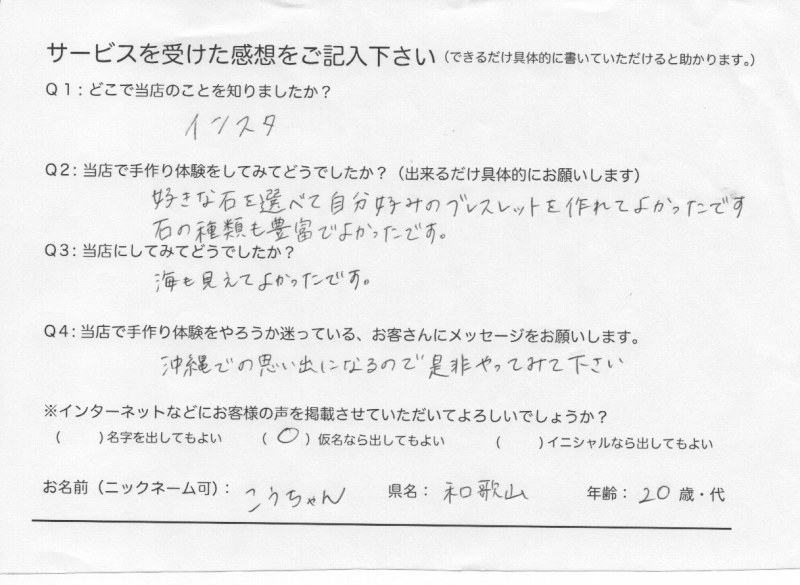 サービスを受けた感想をご記入下さい（できるだけ具体的に書いていただけると助かります。）
Q1：どこで当店のことを知りましたか？
インスタ
Q2：当店で手作り体験をしてみてどうでしたか？（出来るだけ具体的にお願いします）
好きな石を選べて自分好みのブレスレットを作れてよかったです
石の種類も豊富でよかったです。
Q3：当店にしてみてどうでしたか？
海も見えてよかったです。
Q4：当店で手作り体験をやろうか迷っている、お客さんにメッセージをお願いします。
沖縄での思い出になるので是非やってみて下さい
※インターネットなどにお客様の声を掲載させていただいてよろしいでしょうか？
（　　）名字を出してもよい　（ ○ ）仮名なら出してもよい　（　　）イニシャルなら出してもよい
お名前（ニックネーム可）：こうちゃん　県名：和歌山　年齢：20 歳・代